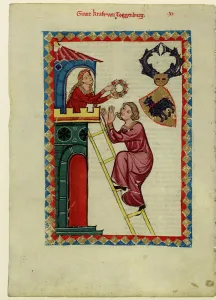 Graue kraft von Toggenburg.